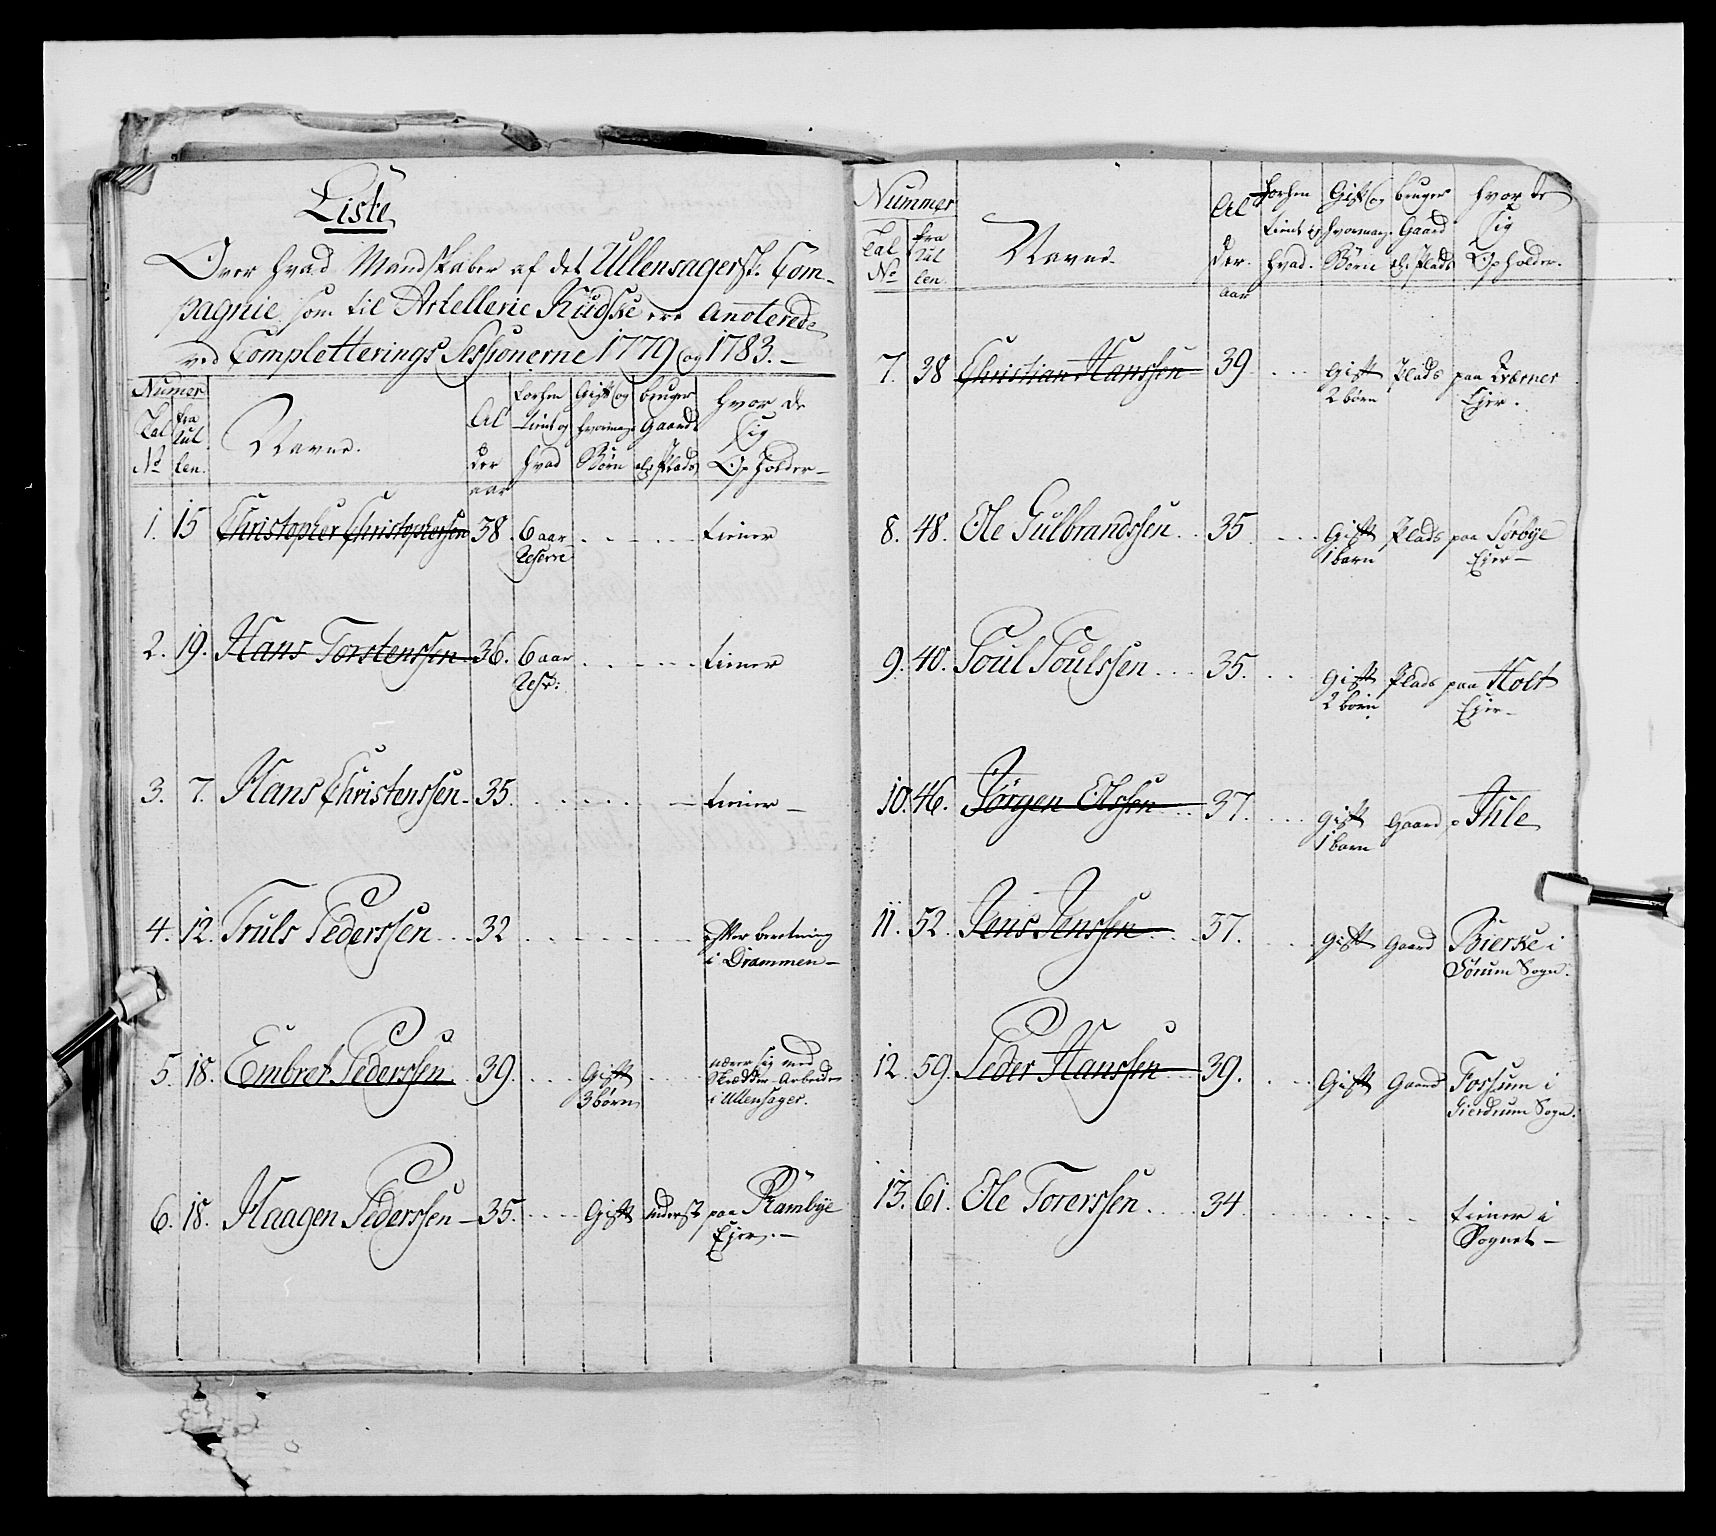 Liste
Over hvad Mandskaber af det Ullensagersk. Com-
pagnie som til Artellerie Kudske ere Anoterede
ved Completterings Sessionerne 1779 og 1783.
Numer
Tal No
fra Rul len.
Navne.
Al der aar
Forhen tient og hvad
Gift og hvormange Børn
bruger Gaard elr Plads
hvor de sig Opholder
1. 15 Christopher Christophersen 38. 6 aar tiener
Reserve
2. 19. Hans Torstenssen 36. 6 aar tiener
Resr:
3. 7. Hans Christenssen 35. tiener
4. 12. Truls Pederssen 32 efter beretning
i Drammen
5. 18. Embret Pederssen 39. Gift nærer sig med
3 børn Skrædder-Arbeide
i Ullensager.
6. 18. Haagen Pederssen 35. Gift Inderst paa Rambÿe
Ejer.
Nummer
Tal No
fra Rul len.
Navne.
Al der. aar
Forhen tient og hvad.
Gift og hvormange Børn
bruger Gaard elr Plads
hvor de sig Opholder.
7. 38 Christian Hanssen 39 Gift Plads paa Kværner
2 børn Ejer.
8. 48. Ole Gulbrandssen 35 Gift Plads paa Sørbÿe
1 barn Ejer
9. 40. Poul Poulssen 35. Gift Plads paa Holt
2 børn Ejer
10. 46. Jørgen Olssen 37. Gift Gaard Ihle
1 barn
11. 52. Jens Jenssen 37. Gift Gaard Bierke i
Sørum Sogn.
12. 59. Peder Hanssen 39. Gift Gaard Fossum i
Gierdrum Sogn.
13. 61. Ole Torerssen 34 tiener i
Sognet